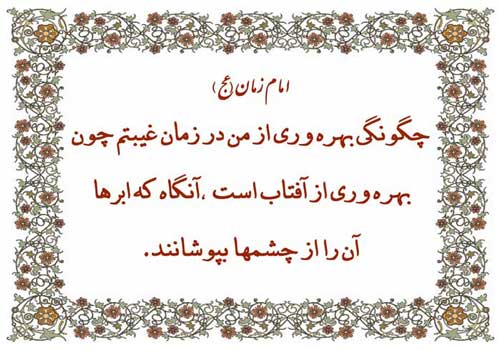 امام زمان (عج)
چگونگی بهره وری از من در زمان غیبتم چون
بهره وری از آفتاب است ، آنگاه که ابرها
آن را از چشمها بپوشانند.